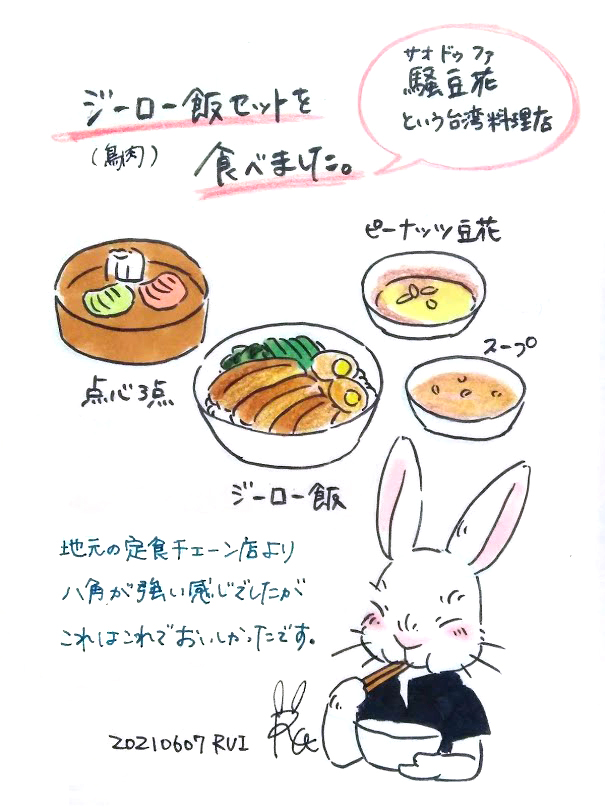 サオ ドウ ファ
騒豆花
という台湾料理店
ジーロー飯セットを
（鳥肉）
食べました。
ピーナッツ豆花
スープ
点心3点
ジーロー飯
地元の定食チェーン店より
八角が強い感じでしたが
これはこれでおいしかったです。
20210607 RUI